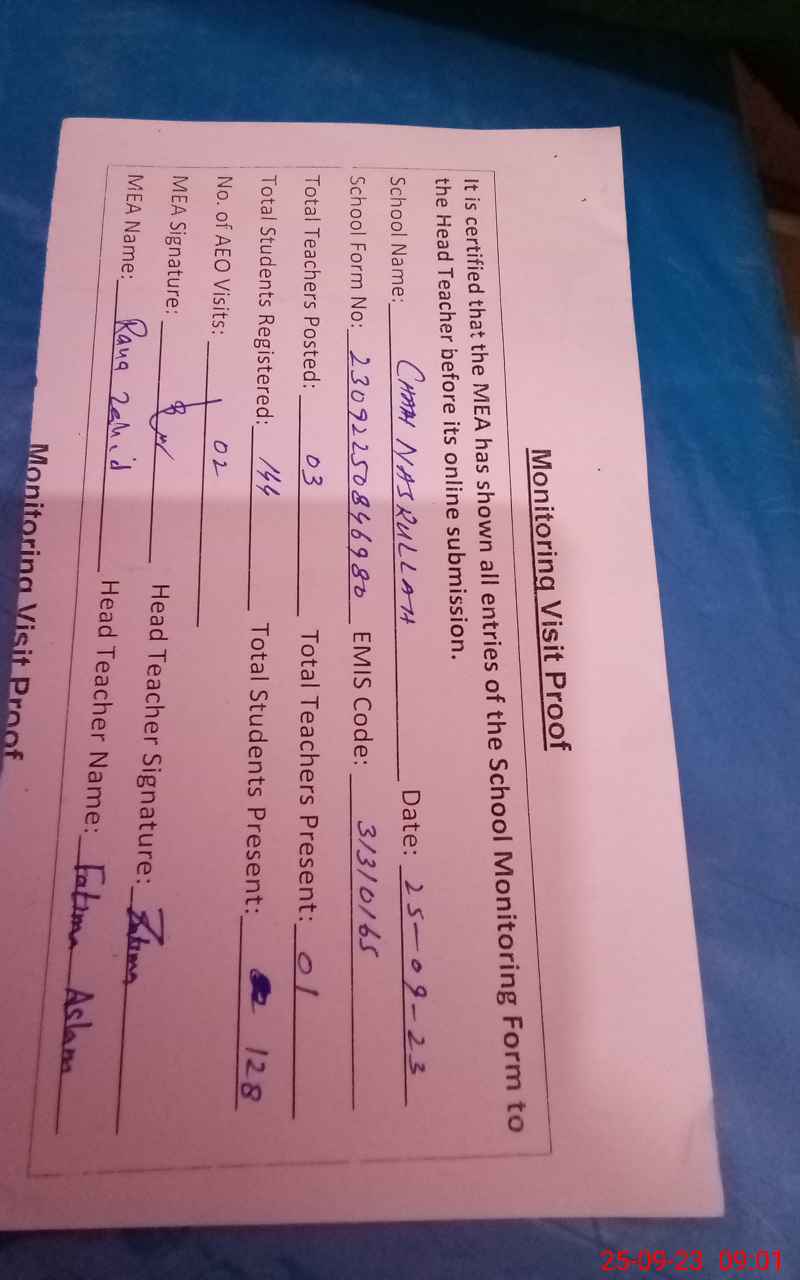 Monitoring Visit Proof
It is certified that the MEA has shown all entries of the School Monitoring Form to
the Head Teacher before its online submission.
School Name: CHAH NASRULLAH Date: 25-09-23
School Form No: 23092250846980 EMIS Code: 31310165
Total Teachers Posted: 03 Total Teachers Present: 01
Total Students Registered: 144 Total Students Present: 128
No. of AEO Visits: 02
MEA Signature: Head Teacher Signature: Fatima
MEA Name: Rana Zahid Head Teacher Name: Fatima Aslam
Monitoring Visit Proof
25-09-23 09:01